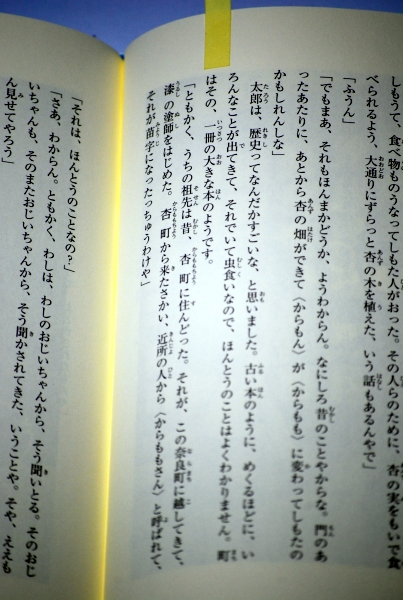 しもうて、食べ物ものうなってしもた人がおった。その人らのために、杏の実をもいで食
べられるよう、大通りにずらっと杏の木を植えた、いう話もあるんやで」
「ふうん」
「でもまあ、それもほんまかどうか、ようわからん。なにしろ昔のことやからな。門のあ
ったあたりに、あとから杏の畑ができて〈からもん〉が〈からもも〉に変わってしもたの
かもしれんしな」
太郎は、歴史ってなんだかすごいな、と思いました。古い本のように、めくるほどに、い
ろんなことが出てきて、それでいて虫食いなので、ほんとうのことはよくわかりません。町
はその、一冊の大きな本のようです。
「ともかく、うちの祖先は昔、杏町に住んどった。それが、この奈良町に越してきて、
漆の塗師をはじめた。杏町から来たさかい、近所の人から〈からももさん〉と呼ばれて、
それが苗字になったっちゅうわけや」
「それは、ほんとうのことなの?」
「さあ、わからん。ともかく、わしは、わしのおじいちゃんから、そう聞いとる。そのおじ
いちゃんも、そのまたおじいちゃんから、そう聞かされてきた、いうことや。そや、ええも
ん見せてやろう」